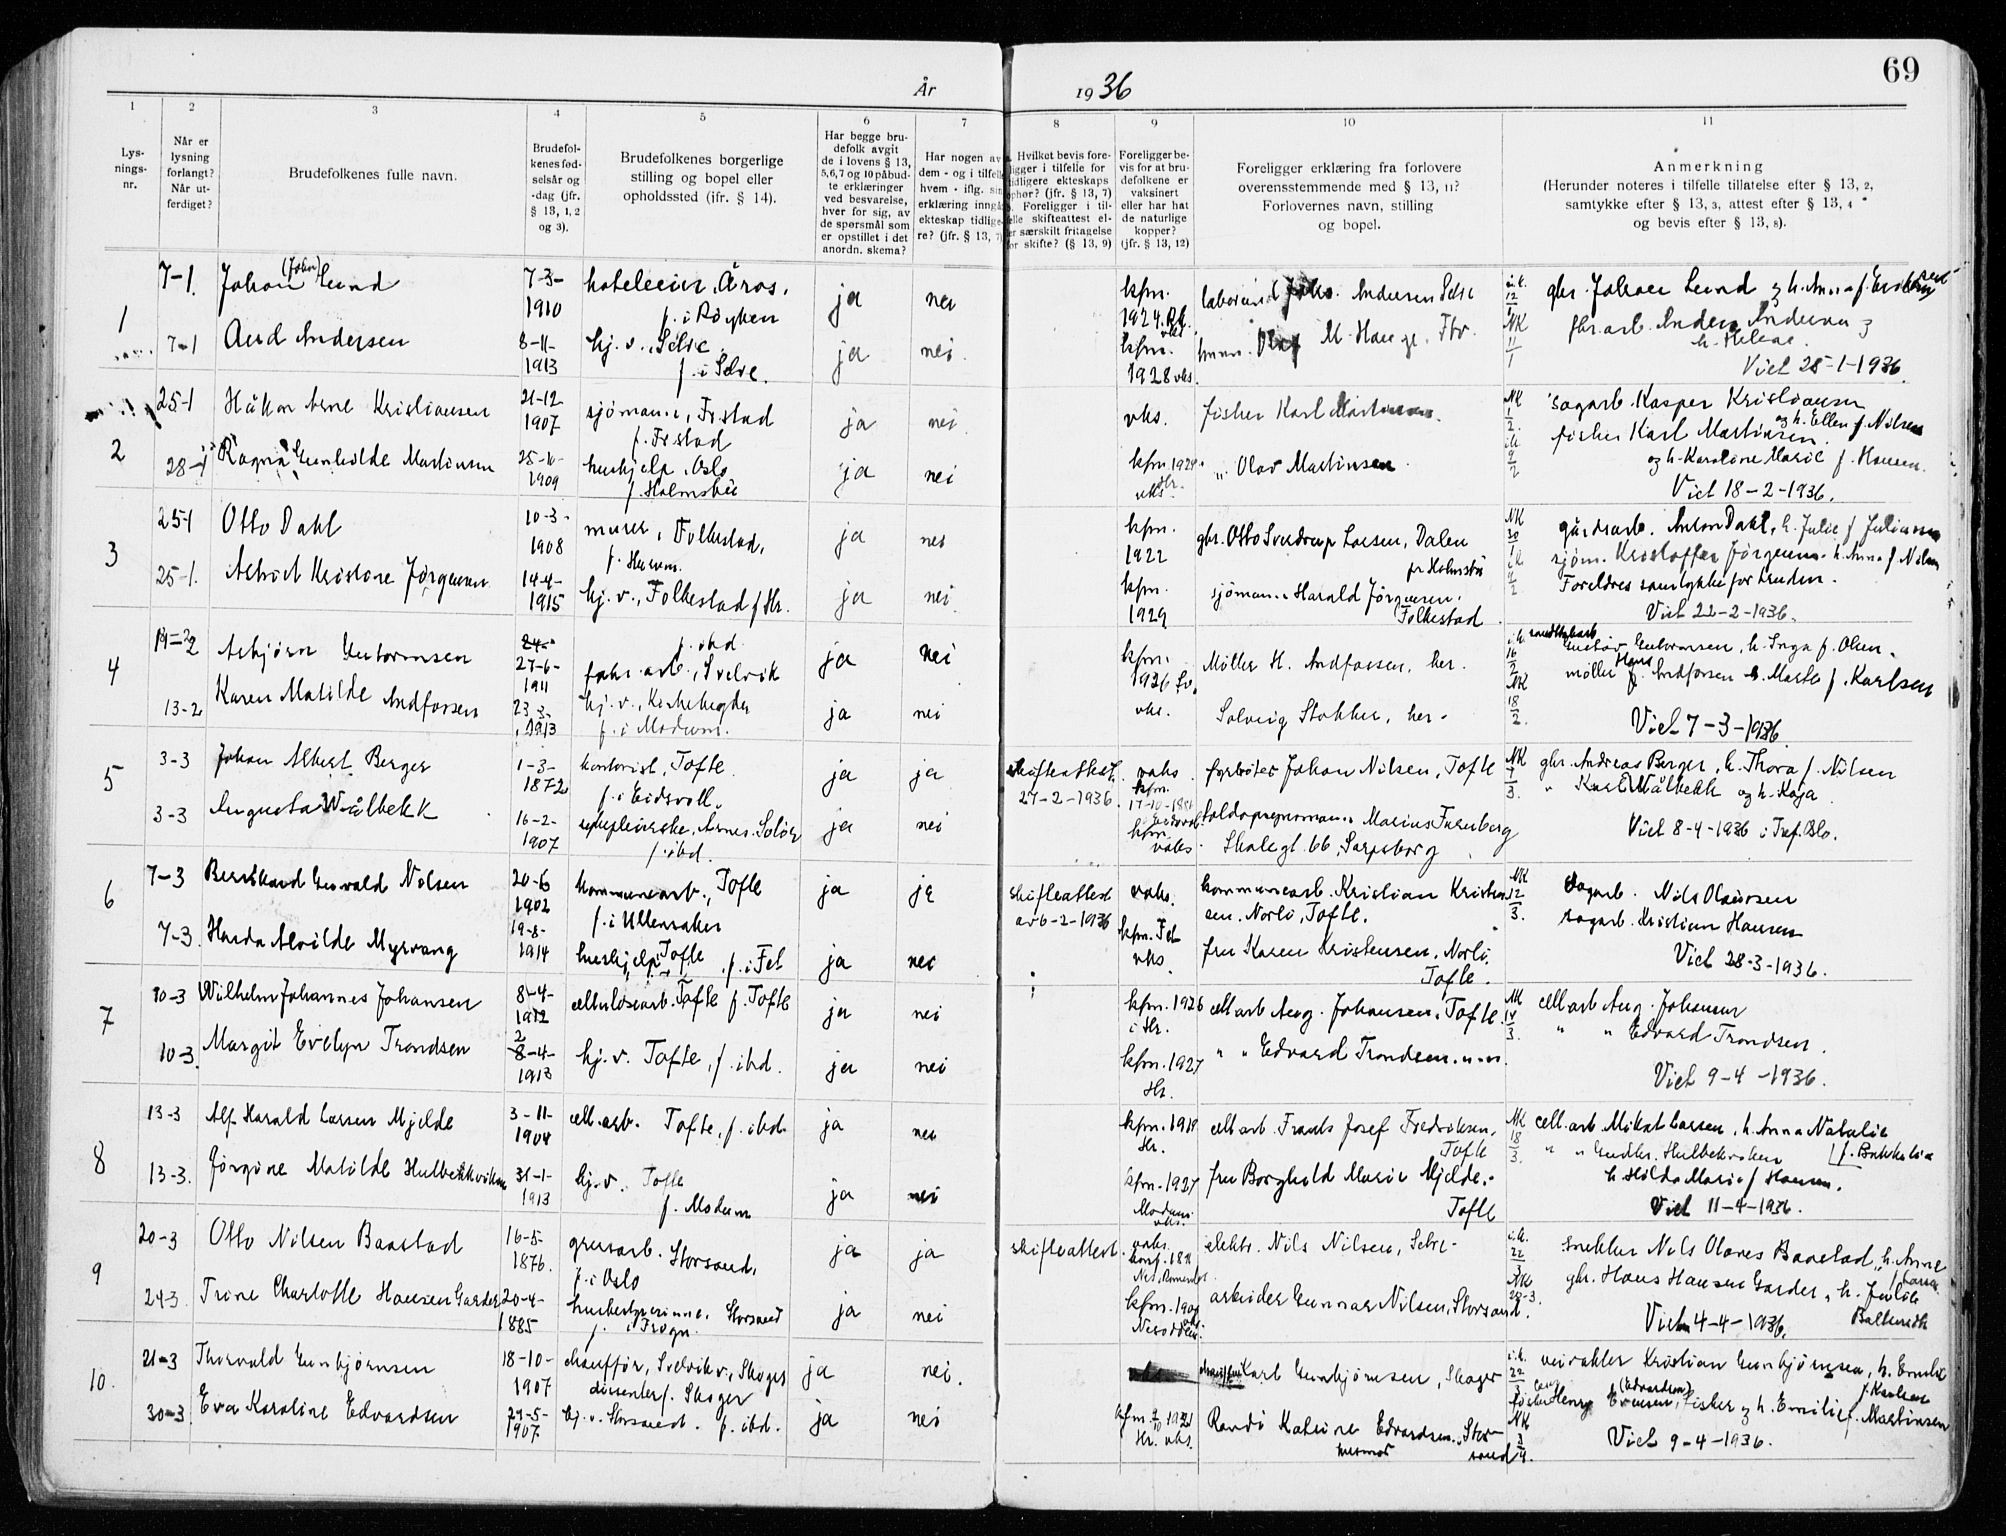 69
År 1936
1 2 3 4 5 6 7 8 9 10 11
Lysningsnr.
Når er lysning forlangt? Når utferdiget?
Brudefolkenes fulle navn.
Brudefolkenes fødselsår og -dag (jfr. § 13, 1, 2 og 3).
Brudefolkenes borgerlige stilling og bopel eller opholdssted (ifr. § 14).
Har begge brudefolk avgit de i lovens § 13, 5,6,7 og 10 påbudte erklæringer ved besvarelse, hver for sig, av de spørsmål som er opstillet i det anordn. skema?
Har nogen av dem - og i tilfelle hvem - iflg. sin erklæring inngå ekteskap tidligere? (jfr. § 13, 7)
Hvilket bevis foreligger i tilfelle for tidligere ekteskaps ophør? (jfr. § 13, 7) Foreligger i tilfelle skifteattest eller særskilt fritagelse for skifte? (§ 13, 9)
Foreligger bevis for at brudefolkene er vaksinert eller har hat de naturlige kopper? (jfr. § 13, 12)
Foreligger erklæring fra forlovere overensstemmende med § 13, 11? Forlovernes navn, stilling og bopel.
Anmerkning
(Herunder noteres i tilfelle tillatelse efter § 13, 2, samtykke efter § 13, 3, attest efter § 13, 4 og bevis efter § 13, 8).
1
7-1 Johan (John) Lund 7-3-1910 hoteleier, Åros, f. i Røyken ja nei kfm. 1924 Andersen Selvi gbr. Johan Lund
7-1 Aud Andersen 8-11-1913 hj. v., Selvi f. i Selvi. ja nei. kfm. 1928 vks. M. Hauge gbr. arb. Anders Andersen
Viet 25-1-1936
2
25-1 Håkon Arne Kristiansen 21-12 1907 sjømann, Frstad f. Frstad ja nei vks. fisker Karl Martinsen sagarb. Kasper Kristiansen og h. Ellen f. Nilsen
28-1 Ragna Gunhilde Martinsen 25-10-1909 hushjelp, Oslo f. Holmsbu ja nei kfm. 1924 Hr. vks. „ Olav Martinsen fisker Karl Martinsen og h. Karoline Marie f. Hansen.
Viet 18-2-1936.
3
25-1 Otto Dahl 10-3-1908 murer, Folkestad, f. Hurum. ja nei kfm. 1922 gbr. Otto Sverdrup Larsen, Dalen pr Holmsbu gårdsarb. Anton Dahl, h. Julie f. Juliussen
25-1. Astrid Kristine Jørgensen 14-4-1915 hj. v., Folkestad f. Hr. ja nei. kfm. 1929 sjømann Harald Jørgensen. Folkestad sjøm. Kristoffer Jørgensen h. Anna f. Nilsen
Foreldres samtykke for bruden.
Viet 22-2-1936.
4
Asbjørn Guttormsen 27-6-1911 f. ibd. fabr. arb., Svelvik ja nei kfm. 1926 Sv. vks. Møller H. Andforsen, her. Gustav Guttormsen, h. Inga f. Olsen.
13-2 Karen Matilde Andforsen 23-3-1913 hj. v., Kirkebygda f. i Modum. ja nei Solveig Stokker, her. NK 18/2. møller Hans J. Andforsen h. Marte f. Karlsen
Viet 7-3-1936
5
3-3 Johan Albert Berger 1-3-1872 kontorist, Tofte f. i Eidsvoll. ja ja skifteattest 27-2-1936. vaks. kfm. fyrbøter Johan Nilsen, Tofte gbr. Andreas Berger, h. Thora f. Nilsen
3-3 Augusta Wålbekk 16-2-1907 sykepleierske, Arnes. Solør f. ibd. ja nei kfm. vaks. toldopsynsmann Marius Furuberg Skolegt 66, Sarpsborg „ Karl Wålbekk og h. Kaja
Viet 8-4-1936 i Tref. Oslo.
6
7-3 Bernhard Gunvald Nilsen 20-6 1902 kommunearb., Tofte f. i Ullensaker ja ja skifteattest av 6-2-1936 vaks. kommunearb. Kristian Kristensen. Norli, Tofte. NK 12/3. sagarb. Nils Olaussen
7-3. Harda Alvilde Myrvang 19-8-1914 hushjelp, Tofte f. i Fet ja nei kfm. Fet vks. fru Karen Kristensen, Norli, Tofte. sagarb. Kristian Hansen
Viet 28-3-1936.
7
10-3 Wilhelm Johannes Johansen 8-4-1912 celluloscarb. Tofte f. Tofte ja nei kfm. 1926 i Hr. cellarb Aug. Johansen, Tofte. NK 14/3. cellarb Aug. Johansen
10-3. Margit Evelyn Trondsen 2-4-1913 hj. v. Tofte, f. ibd. ja nei kfm. 1927 Hr. „ „ Edvard Trondsen „ „ „ „ Edvard Trondsen.
Viet 9-4-1936.
8
13-3 Alf Harald Larsen Mjelde 3-11-1904 cell. arb. Tofte, f. ibd. ja nei kfm. 1919 Hr. cellarb. Frants Josef Fredriksen, Tofte NK 18/3. cell. arb. Mikal Larsen, h. Anna Natalie
13-3. Jørgine Matilde Hulbekkviken 31-1-1913 hj. v. Tofte f. Modum ja nei kfm. 1927 Modum. vks. fru Borghild Marie Mjelde. Tofte „ „ Hulbekviken h. Hilda Marie f. Hansen.
Viet 11-4-1936.
9
20-3 Otto Nilsen Baastad 16-5-1876. grusarb. Storsand, f. i Oslo ja ja skifteattest. vaks. elektr. Nils Nilsen, Selvi snekker Nils Olaves Baastad, h. Anne f. Larsen
24-3 Trine Charlotte Hansen Garder 20-4-1885 husbestyrerinne, Storsand f. i Frogn. ja nei kfm. 1901 Nesodden. arbeider Gunnar Nilsen, Storsand. NK 28-3. gbr. Hans Hansen Garder, h. Julie
Viet 4-4-1936.
10.
21-3 Thorvald Gunbjørnsen 18-10-1907 chauffør, Svelvikv., Skoger dissenter f. Skoger ja nei. Karl Gunbjørnsen, Skoger veivokter Kristian Gunbjørnsen, h. f. Karlsen
30-3 Eva Karoline Edvardsen 29-5-1907. hj. v. Storsand. f. ibd. ja nei kfm. 1921 Hr. vks. Randi Katrine Edvardsen, Storsand husmor Henry (Edvardsen) fisker og h. Emilie f. Martinsen
Viet 9-4-1936.